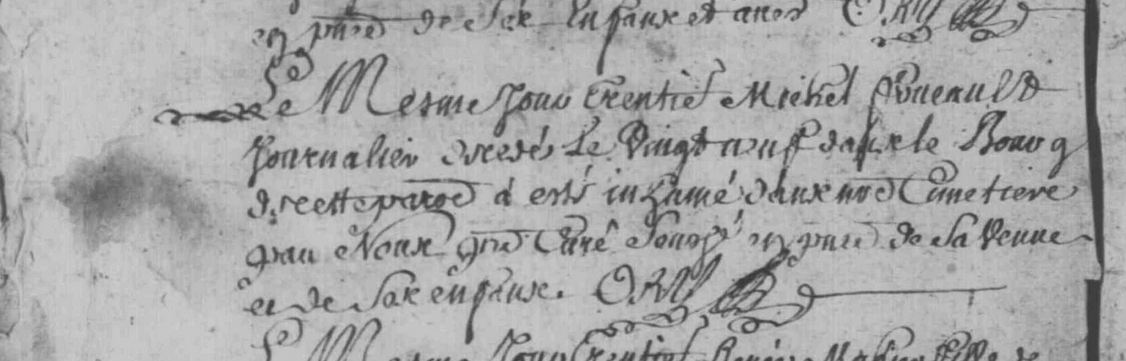 en pnce de ses enfans et autres
Le Mesme Jour trentie Michel
Journalier decedé Le Vingt neuf dans le Bourg
de cette paroe à esté inhumé dans nre Cimetiere
par Nous Curé en pnce de Sa Veuve
et de Ses enfans.
Le Mesme Jour trentie de